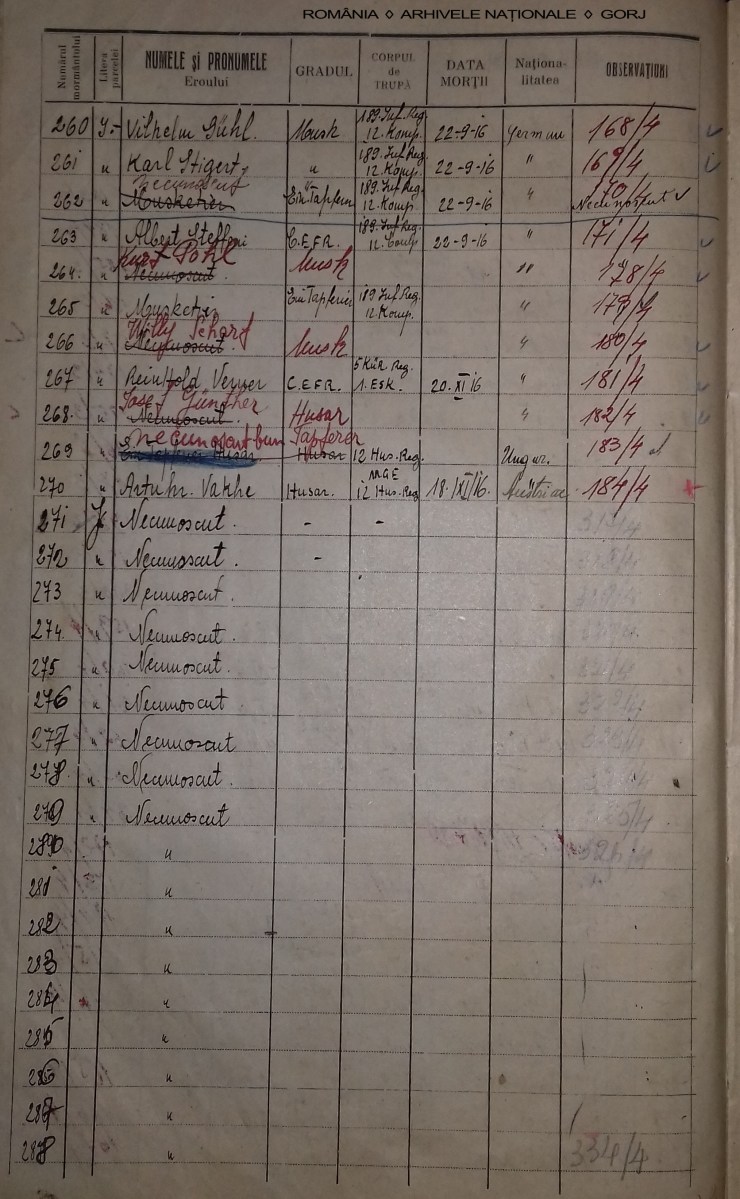 ROMÂNIA ◊ ARHIVELE NAȚIONALE ◊ GORJ
Numărul mormântului | Litera parcelei | NUMELE și PRONUMELE Eroului | GRADUL | CORPUL de TRUPĂ | DATA MORȚII | Naționalitatea | OBSERVAȚIUNI
260 Vilhelm Bühl. Musk 189. Inf. Reg. 12. Komp. 22-9-16 German 168/4
261 " Karl Stigert " 189. Inf. Reg. 12. Komp. 22-9-16 " 169/4
262 " Necunoscut Musketier Ein Tapferer 189. Inf. Reg. 12. Komp. 22-9-16 " 170/4 Necunoscut
263 " Albert Steffani C.E.F.R. 189. Inf. Reg. 12. Comp 22-9-16 " 171/4
264. " Kurt Pohl Necunoscut. Musk " 178/4
265 " Musketier Ein Tapferer 189 Inf. Reg. 12. Komp. " 179/4
266 " Willy Scharf Necunoscut. Musk " 180/4
267 " Reinhold Verner C.E.F.R. 5 Kür. Reg. 1. Esk. 20. XI 16 " 181/4
268. " Josef Günther Necunoscut. Husar " 182/4
269 " necunoscut bun Tapferer Ein Tapferer Husar Husar 12 Hus. Reg. Ungur. 183/4
270 " Arthur. Vakhe Husar. 12 Hus. Reg 18. XI/16. Austriac 184/4
271 Necunoscut. - -
272 " Necunoscut. -
273 " Necunoscut.
274. " Necunoscut.
275 " Necunoscut.
276 " Necunoscut
277 " Necunoscut
278. " Necunoscut.
279 " Necunoscut
280 "
281 "
282 "
283 "
284 "
285 "
286 "
287 "
288 " 334/4